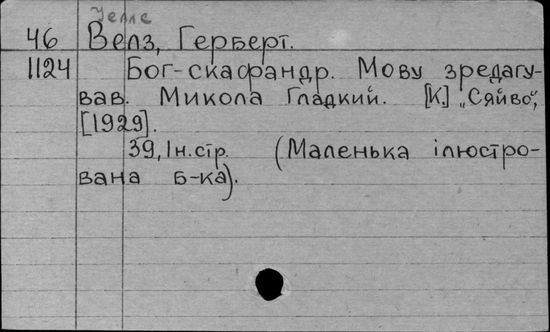 Уеллс
46 Велз, Герберт.
1124 Бог-скафандр. Мову зредагу-
вав. Микола Гладкий. [К.] „Сяйво“,
[1929].
39, 1н.стр. (Маленька ілюстро-
вана б-ка).